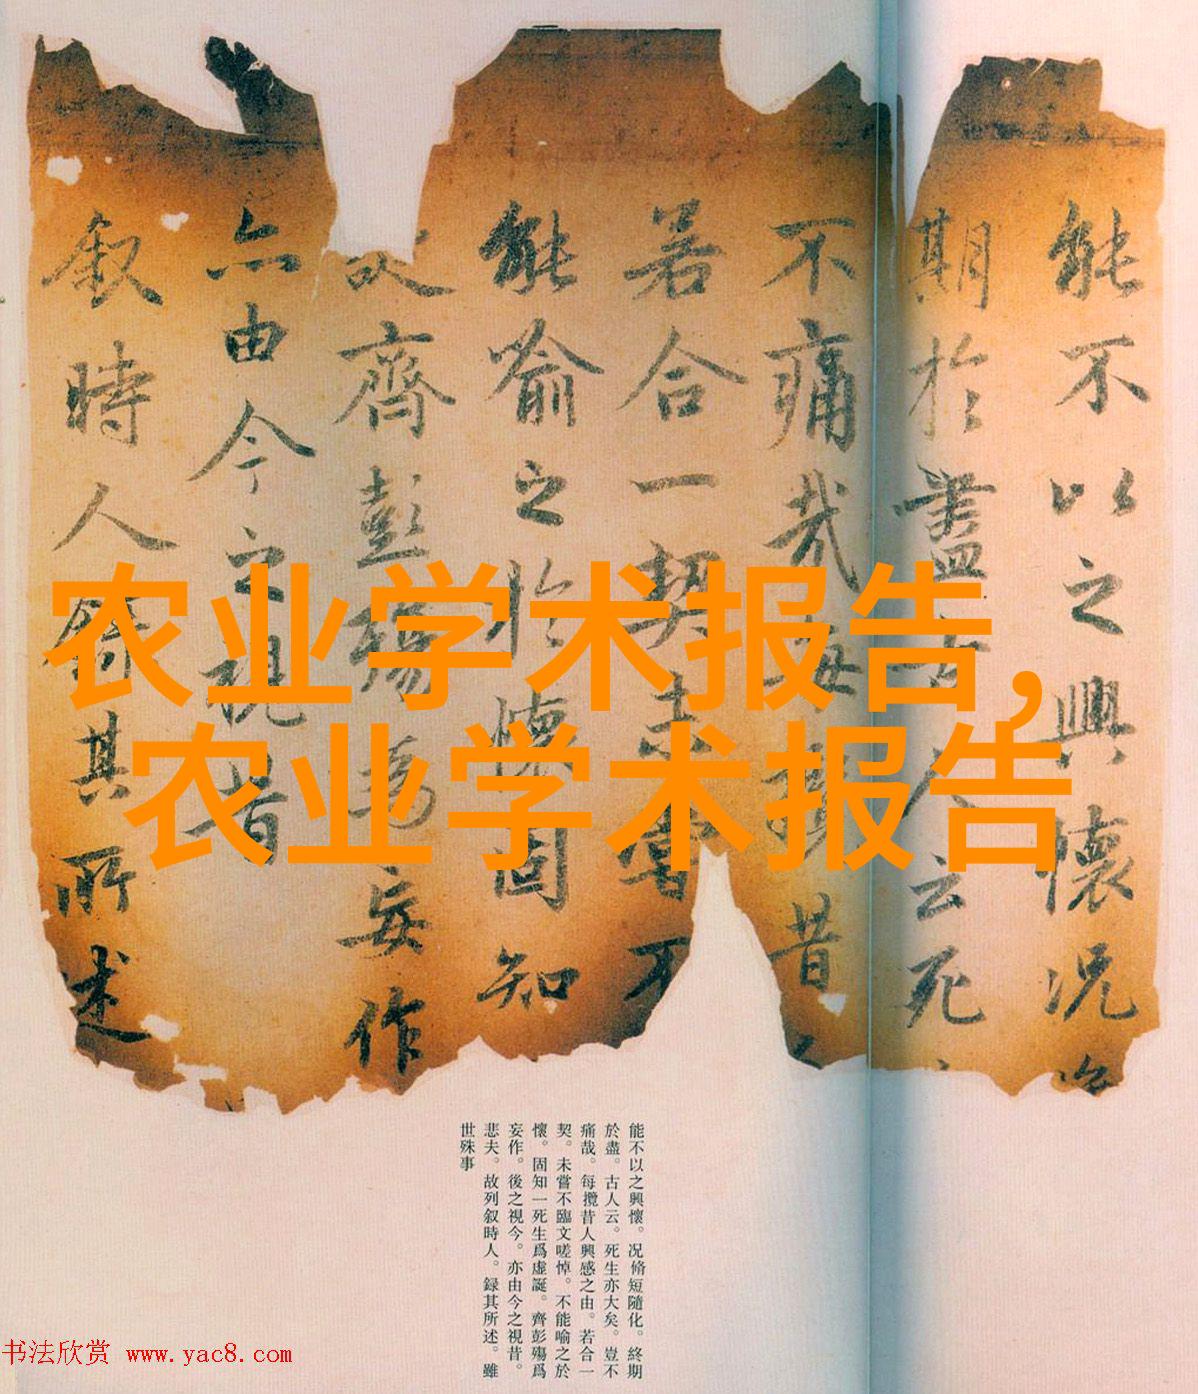 能不以之興懷况
期於盡古人云死
不痛哉每攬昔
若合一契未嘗不
能喻之於懷固知
齊彭殤爲妄作
亦由今之視昔
叙時人録其所述
农业学术报告,
农业学术报告
能不以之興懷。况脩短隨化。終期
於盡。古人云。死生亦大矣。豈不
痛哉。每攬昔人興感之由。若合一
契。未嘗不臨文嗟悼。不能喻之於
懷。固知一死生爲虛誕。齊彭殤爲
妄作。後之視今。亦由今之視昔。
悲夫。故列叙時人。録其所述。雖
世殊事
书法欣赏 www.yac8.com